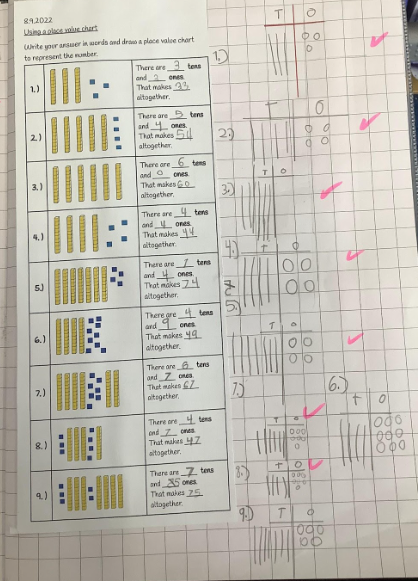 8.9.2022
Using a place value chart
Write your answer in words and draw a place value chart
to represent the number.
1.)
There are 3 tens
and 2 ones.
That makes 33
altogether.
2.)
There are 5 tens
and 4 ones.
That makes 54
altogether.
3.)
There are 6 tens
and 0 ones.
That makes 60
altogether.
4.)
There are 4 tens
and 4 ones.
That makes 44
altogether.
5.)
There are 7 tens
and 4 ones.
That makes 74
altogether.
6.)
There are 4 tens
and 9 ones.
That makes 49
altogether.
7.)
There are 6 tens
and 7 ones.
That makes 67
altogether.
8.)
There are 4 tens
and 7 ones.
That makes 47
altogether.
9.)
There are 7 tens
and 35 ones.
That makes 75
altogether.
1.)
T O
2.)
T O
3.)
T O
4.)
T O
5.
T O
7.)
T O
6.)
T O
8.)
T O
9.)
T O